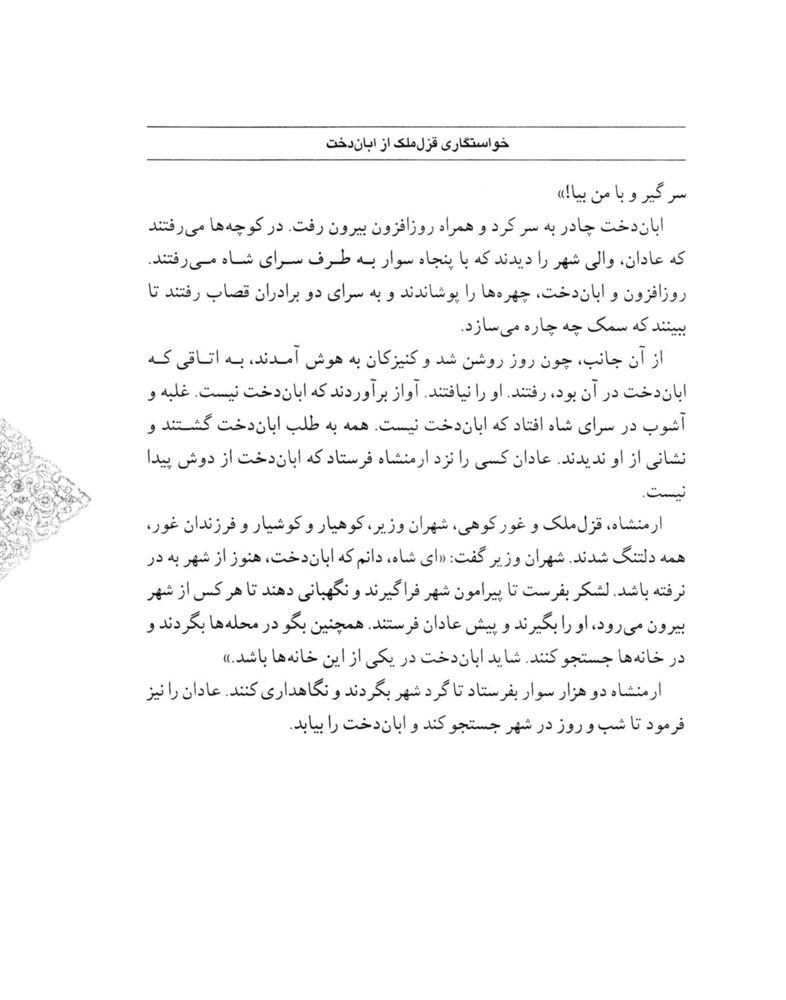 خواستگاری قزل‌ملک از ابان‌دخت
سر گیر و با من بیا!»
ابان‌دخت چادر به سر کرد و همراه روزافزون بیرون رفت. در کوچه‌ها می‌رفتند
که عادان، والی شهر را دیدند که با پنجاه سوار به طرف سرای شاه می‌رفتند.
روزافزون و ابان‌دخت، چهره‌ها را پوشاندند و به سرای دو برادران قصاب رفتند تا
ببینند که سمک چه چاره می‌سازد.
از آن جانب، چون روز روشن شد و کنیزکان به هوش آمدند، به اتاقی که
ابان‌دخت در آن بود، رفتند. او را نیافتند. آواز برآوردند که ابان‌دخت نیست. غلبه و
آشوب در سرای شاه افتاد که ابان‌دخت نیست. همه به طلب ابان‌دخت گشتند و
نشانی از او ندیدند. عادان کسی را نزد ارمنشاه فرستاد که ابان‌دخت از دوش پیدا
نیست.
ارمنشاه، قزل‌ملک و غورکوهی، شهران وزیر، کوهیار و کوشیار و فرزندان غور،
همه دلتنگ شدند. شهران وزیر گفت: «ای شاه، دانم که ابان‌دخت، هنوز از شهر به در
نرفته باشد. لشکر بفرست تا پیرامون شهر فراگیرند و نگهبانی دهند تا هر کس از شهر
بیرون می‌رود، او را بگیرند و پیش عادان فرستند. همچنین بگو در محله‌ها بگردند و
در خانه‌ها جستجو کنند. شاید ابان‌دخت در یکی از این خانه‌ها باشد.»
ارمنشاه دو هزار سوار بفرستاد تا گرد شهر بگردند و نگاهداری کنند. عادان را نیز
فرمود تا شب و روز در شهر جستجو کند و ابان‌دخت را بیابد.